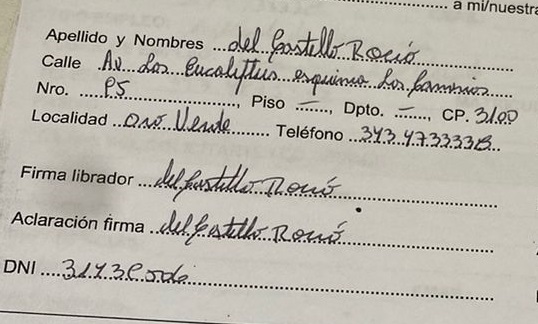 a mi/nuestra
Apellido y Nombres ... del Castello Roció
Calle Av. Los Eucaliptus esquina Los
Nro. P5, Piso —, Dpto. —, CP. 3100
Localidad ... Oro Verde ... Teléfono ... 343
Firma librador ... del Castello Roció
Aclaración firma ... del Castello Roció
DNI ....